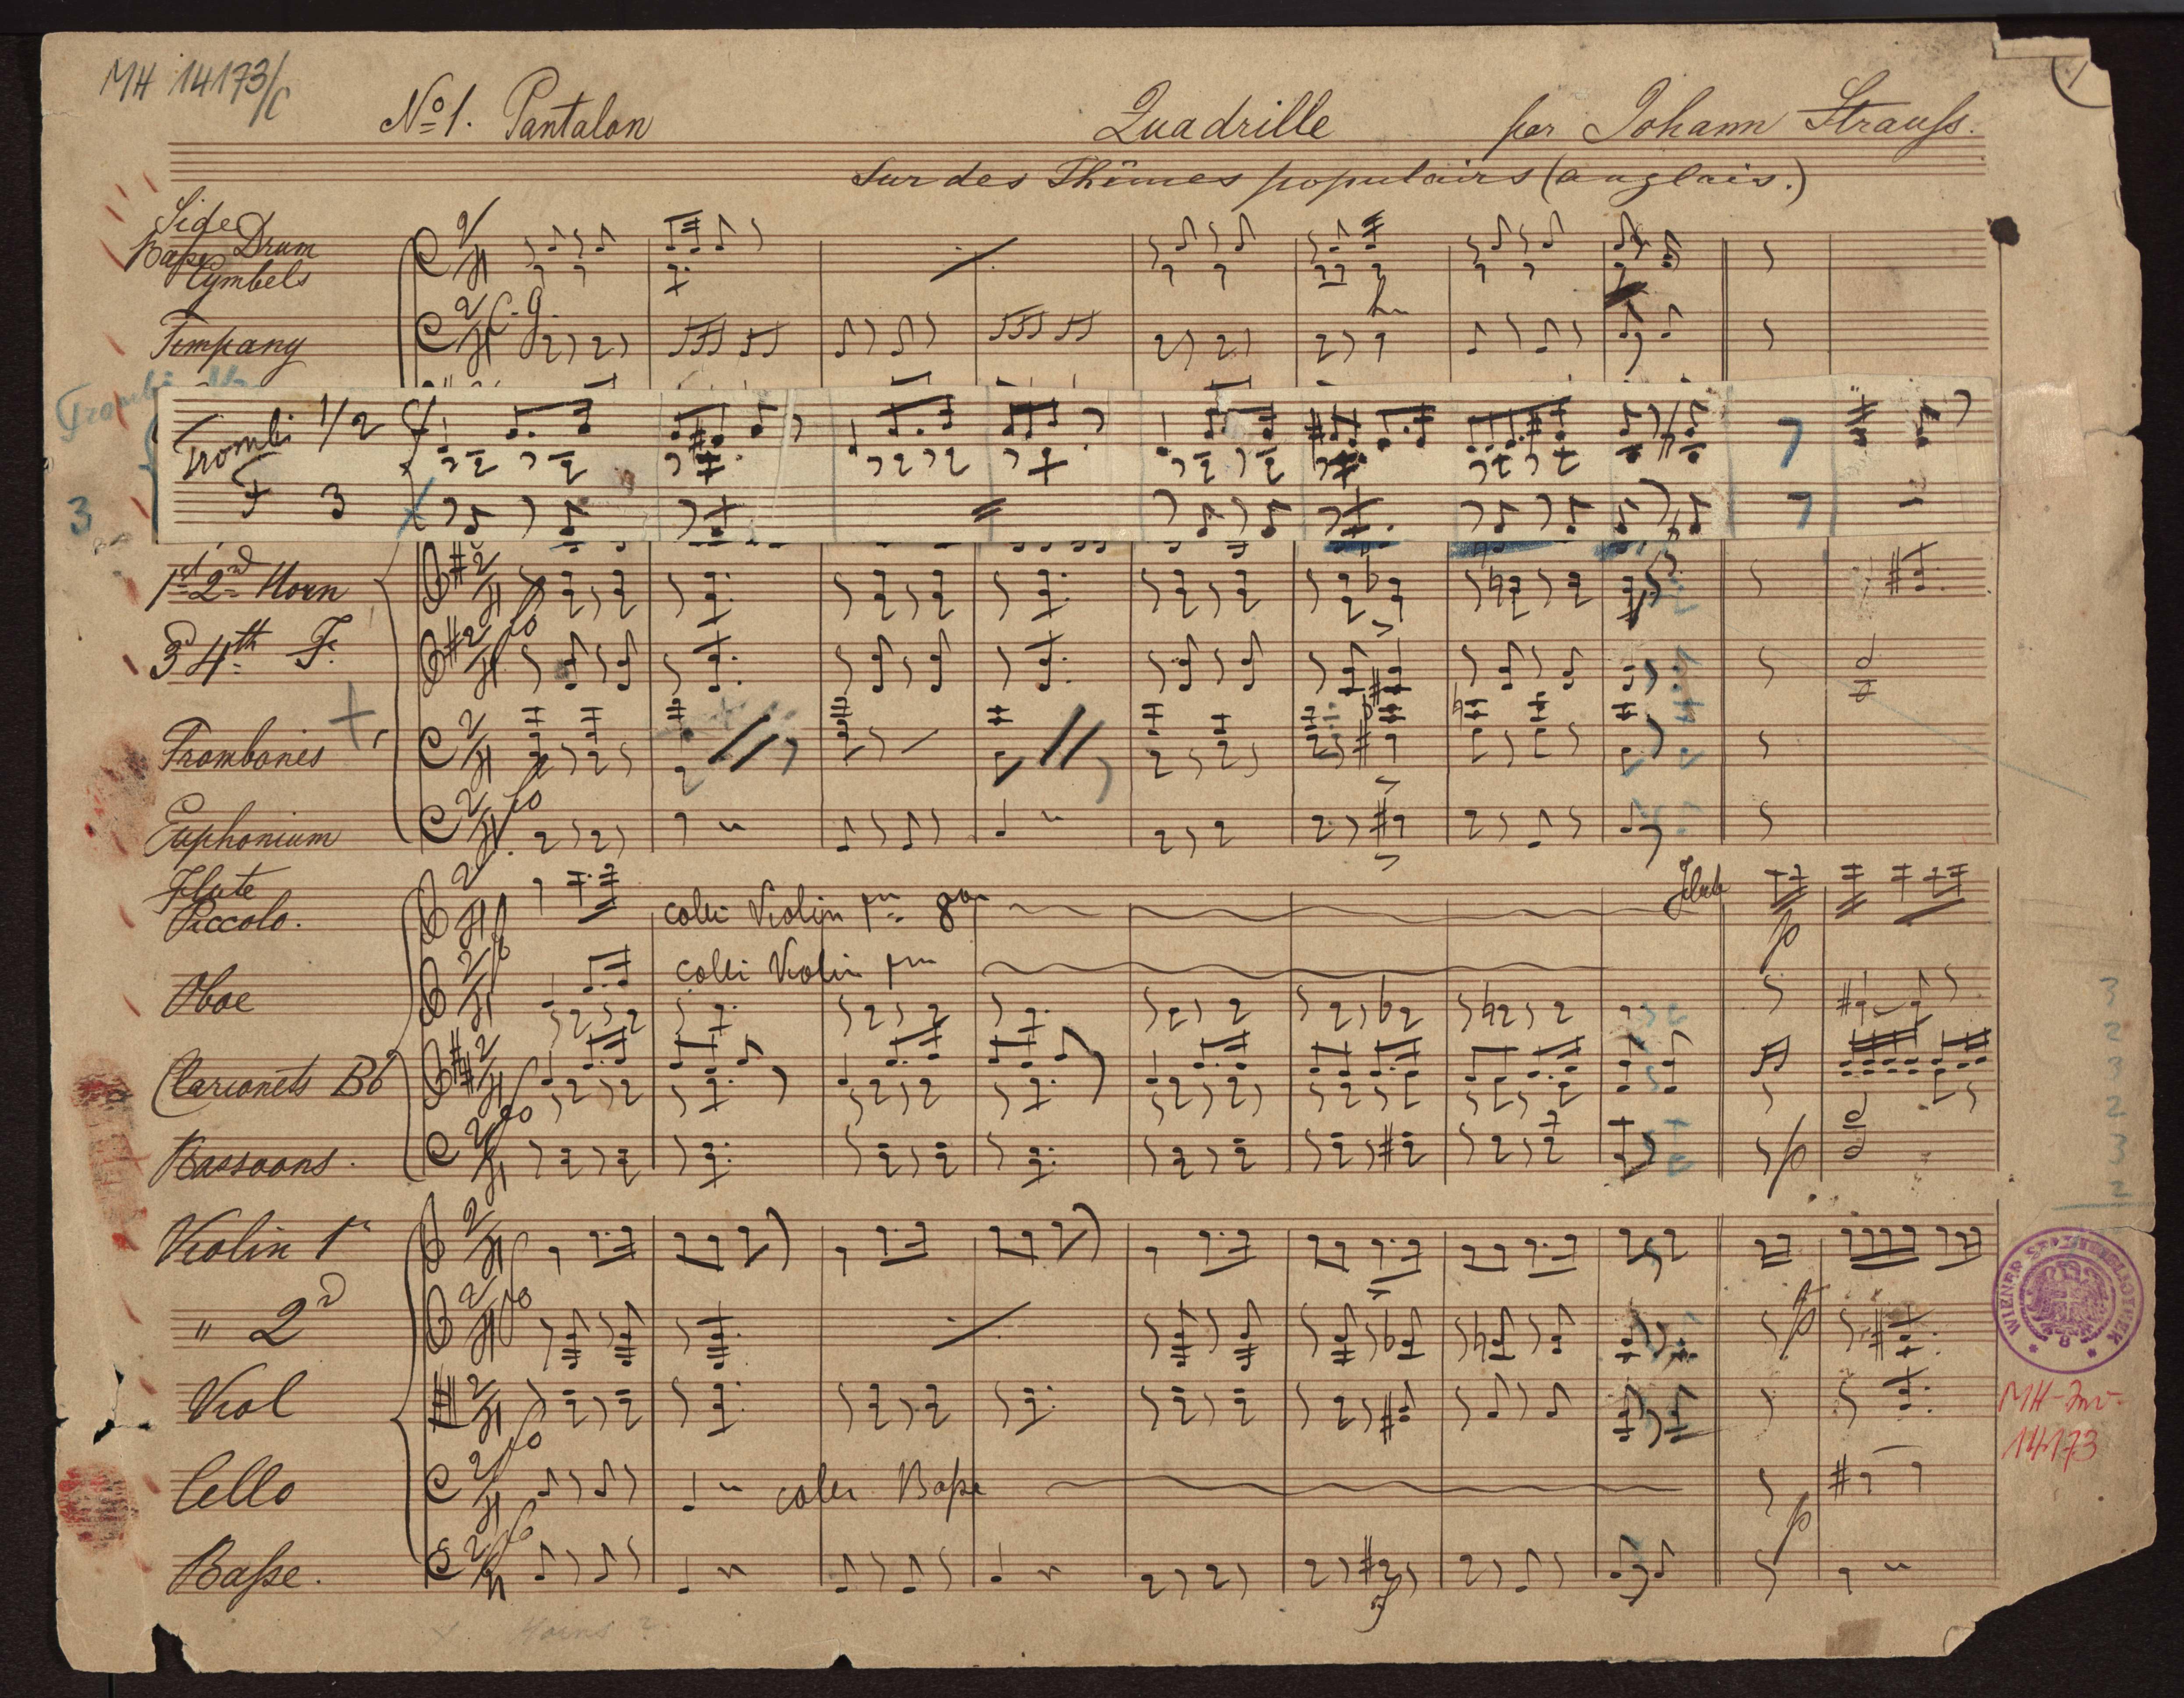 MH 14173/c
1
No 1. Pantalon Quadrille par Johann Strauss.
Sur des Thêmes populairs (anglais.)
Side Drum
Basse
Cymbels
Tempany C. G.
Trombi 1/2
F 3
3
1st 2nd Horn
3d 4th F.
Trombones
Euphonium
Flute
Piccolo. colli Violin pm 8va Flute
p
Oboe colli Violin pm
Clarionets Bb
Bassoons. p
Violin 1o
" 2d p
Viol
Cello colli Basse
p
Basse.
3
2
3
2
3
2
WIENER STADTBIBLIOTHEK
MH-Inv-
14173